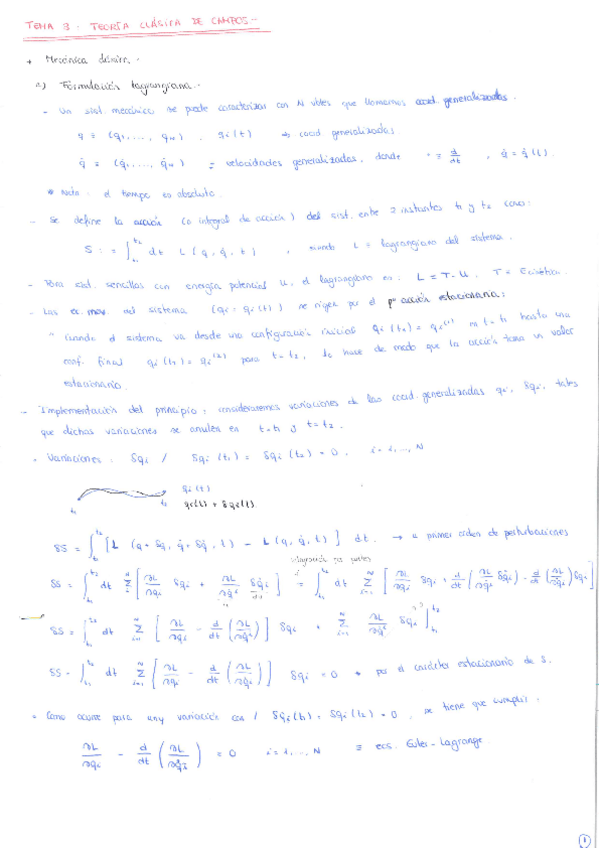 TEMA 3. TEORÍA CLÁSICA DE CAMPOS.-
+ Mecánica clásica.-
a) Formulación lagrangiana.-
- Un sist. mecánico se puede caracterizar con N vbles que llamamos coord. generalizadas.
q ≡ (q₁, ..., q_N), q_i(t) → coord. generalizadas
q̇ ≡ (q̇₁, ..., q̇_N) ≡ velocidades generalizadas, donde · ≡ d/dt, q̇ = q̇(t).
* Nota: el tiempo es absoluto.
- Se define la acción (o integral de acción) del sist. entre 2 instantes t₁ y t₂ como:
S := ∫_{t₁}^{t₂} dt L(q, q̇, t), siendo L = lagrangiano del sistema.
- Para sist. sencillos con energía potencial U, el lagrangiano es: L = T - U, T = E cinética.
- Las ec. mov. del sistema (q_i = q_i(t)) se rigen por el pº acción estacionaria:
" Cuando el sistema va desde una configuración inicial q_i(t₁) = q_i^(1) en t = t₁ hasta una
conf. final q_i(t₂) = q_i^(2) para t = t₂, lo hace de modo que la acción tiene un valor
estacionario.
- Implementación del principio: consideraremos variaciones de las coord. generalizadas q_i, δq_i, tales
que dichas variaciones se anulen en t = t₁ y t = t₂.
• Variaciones: δq_i / δq_i(t₁) = δq_i(t₂) = 0, i = 1, ..., N
q_i(t)
t₁ t₂ q_i(t) + δq_i(t)
δS = ∫_{t₁}^{t₂} [L(q + δq, q̇ + δq̇, t) - L(q, q̇, t)] dt. → a primer orden de perturbaciones
integrando por partes
δS = ∫_{t₁}^{t₂} dt Σ_{i=1}^{N} [∂L/∂q_i δq_i + ∂L/∂q̇_i δq̇_i] = ∫_{t₁}^{t₂} dt Σ_{i=1}^{N} [∂L/∂q_i δq_i + d/dt (∂L/∂q̇_i δq_i) - d/dt (∂L/∂q̇_i) δq_i]
δS = ∫_{t₁}^{t₂} dt Σ_{i=1}^{N} [∂L/∂q_i - d/dt (∂L/∂q̇_i)] δq_i + Σ_{i=1}^{N} ∂L/∂q̇_i δq_i |_{t₁}^{t₂}
δS = ∫_{t₁}^{t₂} dt Σ_{i=1}^{N} [∂L/∂q_i - d/dt (∂L/∂q̇_i)] δq_i = 0 * por el carácter estacionario de S.
• Como ocurre para any variación con / δq_i(t₁) = δq_i(t₂) = 0, se tiene que cumplir:
∂L/∂q_i - d/dt (∂L/∂q̇_i) = 0 i = 1, ..., N ≡ ecs. Euler-Lagrange
1